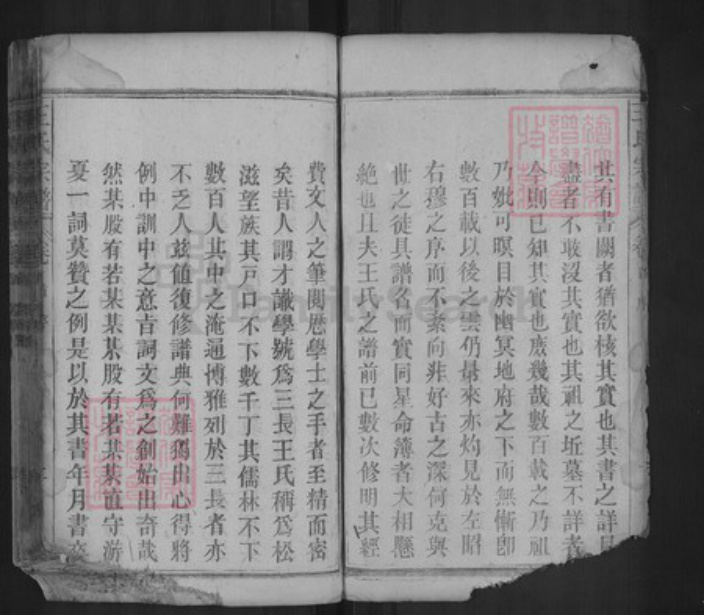 其有書闕者猶欲核其實也其書之詳且
盡者不敢沒其實也其祖之坵墓不詳者
今則已知其實也庶幾哉數百載之乃祖
乃妣可暝目於幽冥地府之下而無慚卽
數百載以後之雲仍曇來亦灼見於左昭
右穆之序而不紊向非好古之深何克與
世之徒具譜名而實同星命簿者大相懸
絶也且夫王氏之譜前已數次修明其經
費文人之筆閲歷學士之手者至精而密
矣昔人謂才識學號爲三長王氏稱爲松
滋望族其戸口不下數千丁其儒林不下
數百人其中之淹通博雅列於三長者亦
不乏人兹値復修譜典何難獨出心得將
例中訓中之意旨詞文爲之創始出奇哉
然某股有若某某某股有若某某直守游
夏一詞莫贊之例是以於其書年月書
王氏宗譜
王氏宗譜
FamilySearch